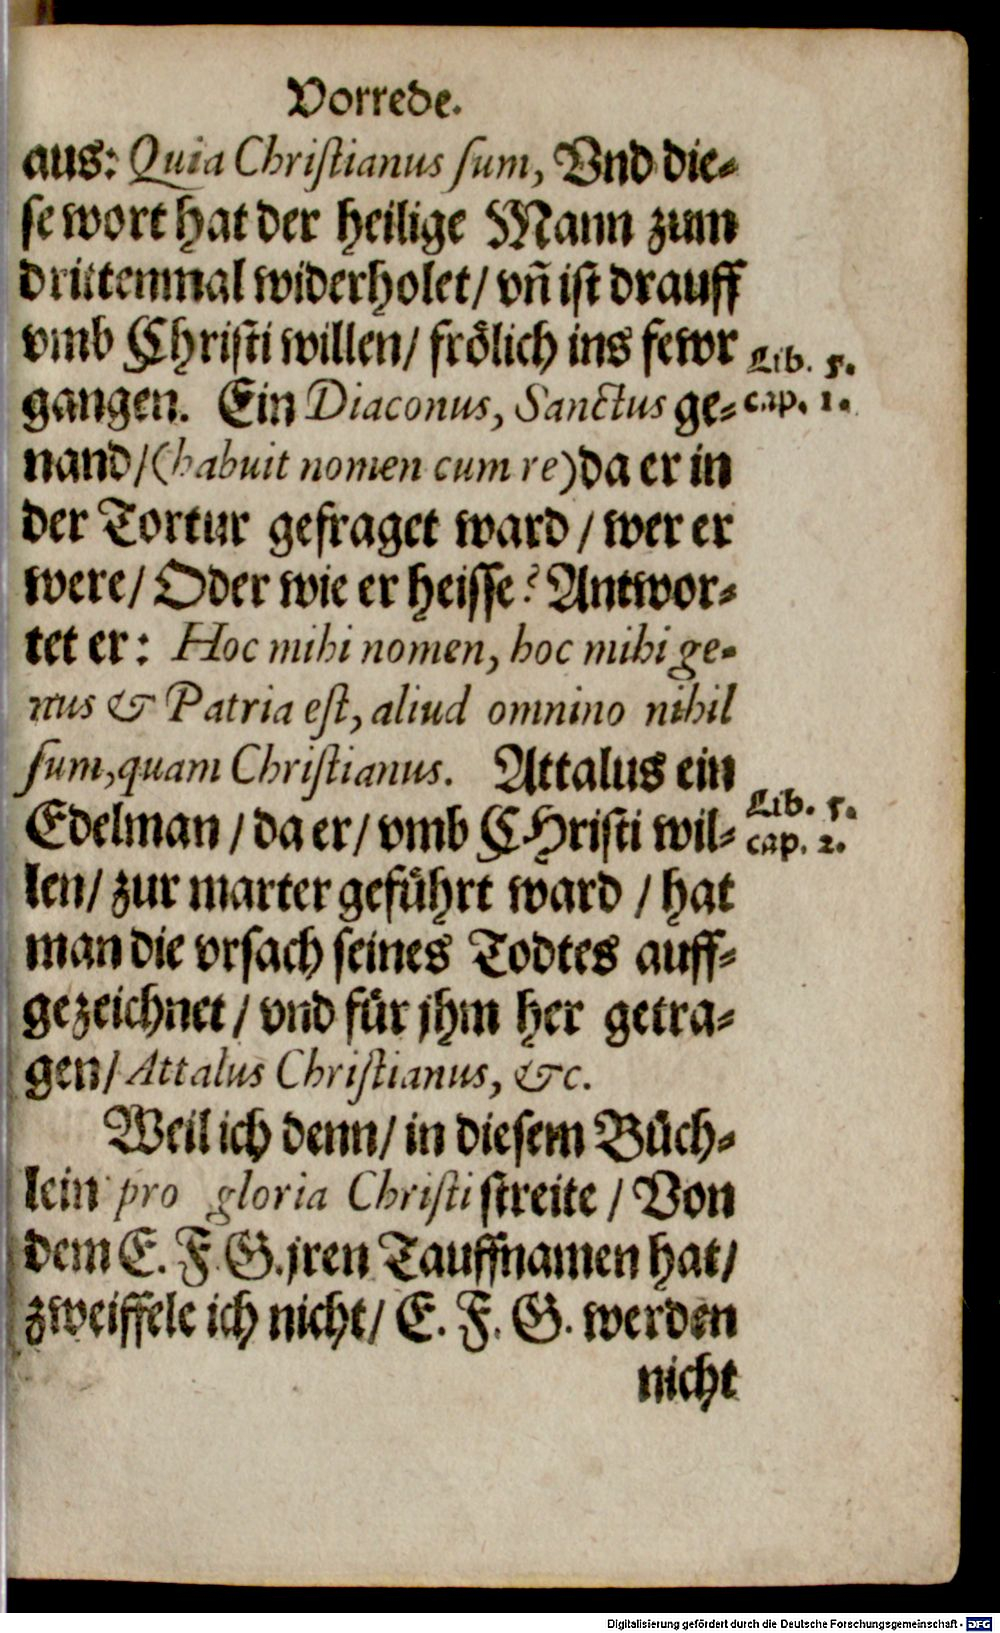 Vorrede.
aus: Quia Chriſtianus ſum, Vnd die-
ſe wort hat der heilige Mann zum
drittenmal widerholet/ vn̄ iſt drauff
vmb Chriſti willen/ froͤlich ins fewr
gangen. Ein Diaconus, Sanctus ge-
Lib. 5.
cap. 1.
nand/ (habuit nomen cum re) da er in
der Tortur gefraget ward / wer er
were/ Oder wie er heiſſe? Antwor-
tet er: Hoc mihi nomen, hoc mihi ge-
nus & Patria eſt, aliud omnino nihil
ſum, quam Chriſtianus. Attalus ein
Edelman / da er / vmb CHriſti wil-
Lib. 5.
cap. 2.
len/ zur marter gefuͤhrt ward / hat
man die vrſach ſeines Todtes auff-
gezeichnet / vnd fuͤr jhm her getra-
gen/ Attalus Chriſtianus, &c.
Weil ich denn/ in dieſem Buͤch-
lein pro gloria Chriſti ſtreite / Von
dem E. F. G. jren Tauffnamen hat/
zweiffele ich nicht/ E. F. G. werden
nicht
Digitalisierung gefördert durch die Deutsche Forschungsgemeinschaft - DFG